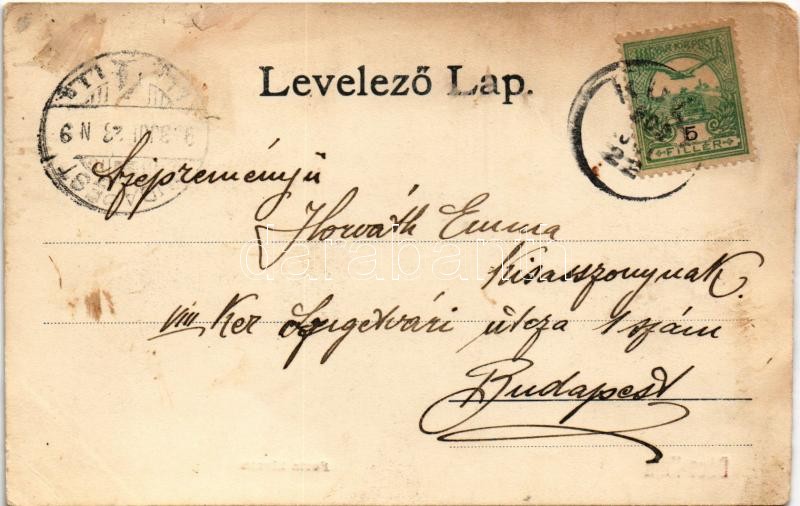 Levelező Lap.
MAGYAR KIR. POSTA
5
FILLÉR
BUDAPEST
Szépreményű
Horváth Emma
kisasszonynak.
VIII Ker Szigetvári útcza 1 szám
Budapest
darabanth